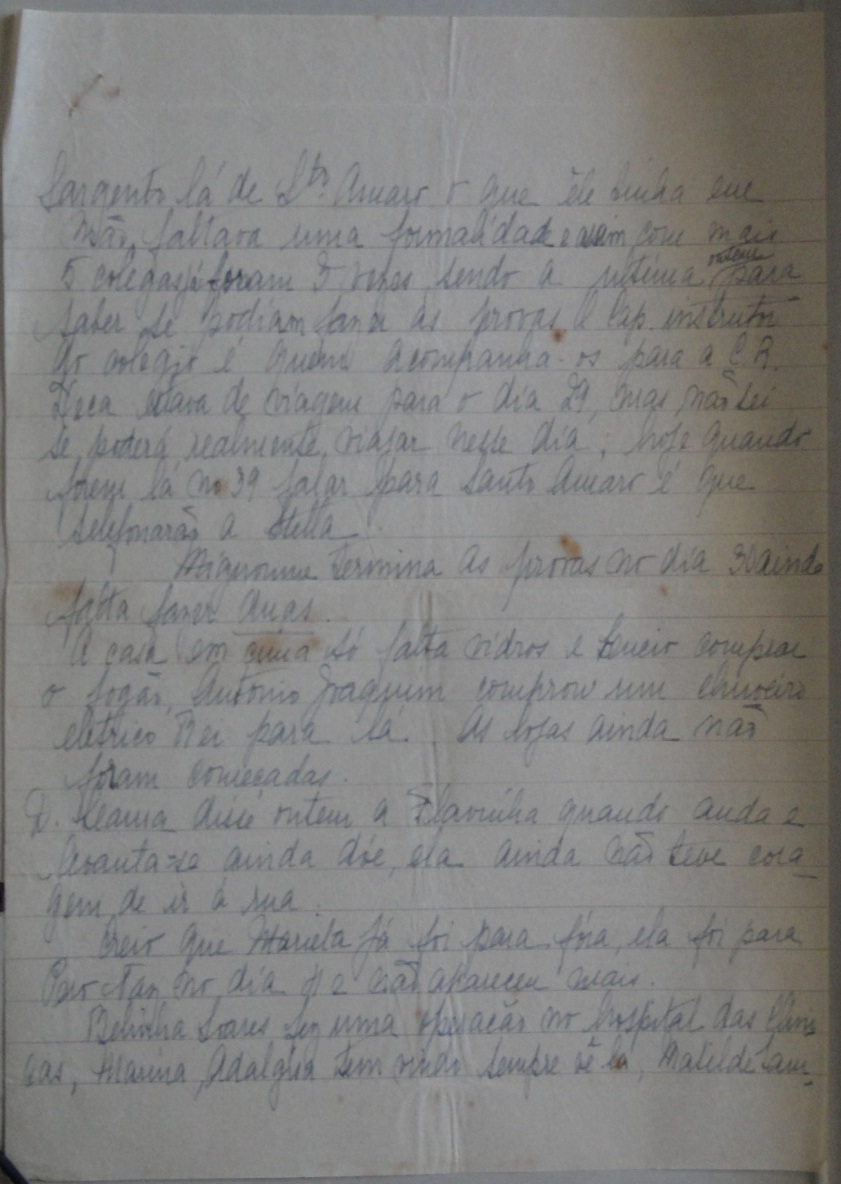 Sargento lá de Sto. Amaro o que êle tinha em
mão, faltava uma formalidade e assim com mais
5 colegas já foram 3 vezes, sendo a ultima ontem para
saber se podiam fazer as provas e Cap. instrutor
do colegio é quem acompanha-os para a C. R.
Zéca estava de viagem para o dia 29, mas não sei
se poderá realmente viajar nesse dia; hoje quando
forem lá no 39 falar para Santo Amaro é que
telefonarão a Stella.
Mignonne termina as provas no dia 30 ainda
falta fazer duas.
A casa em cima só falta vidros e Lucio comprar
o fogão, Antonio Joaquim comprou um chuveiro
elétrico Rei para lá. As lojas ainda não
foram começadas.
D. disse ontem a Flavinha quando anda e
levanta-se ainda dóe, ela ainda não teve cora_
gem de ir á rua.
Creio que Marieta já foi para fóra, ela foi para
no dia e não apareceu mais.
Belinha Soares fez uma operação no hospital das Clini_
cas, Marina Adalgisa tem vindo sempre vê la, Matilde tam_